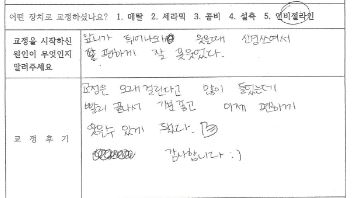 어떤 장치로 교정하셨나요? 1. 메탈 2. 세라믹 3. 콤비 4. 설측 5. 인비절라인
교정을 시작하신
원인이 무엇인지
말해주세요
앞니가 튀어나와서 웃을때 신경쓰여서
편하게 잘 못웃었다.
교정후기
교정은 오래 걸린다고 많이 들었는데
빨리 끝나서 기분 좋고 이제 편하게
웃을수 있게 됐다.
감사합니다 :)